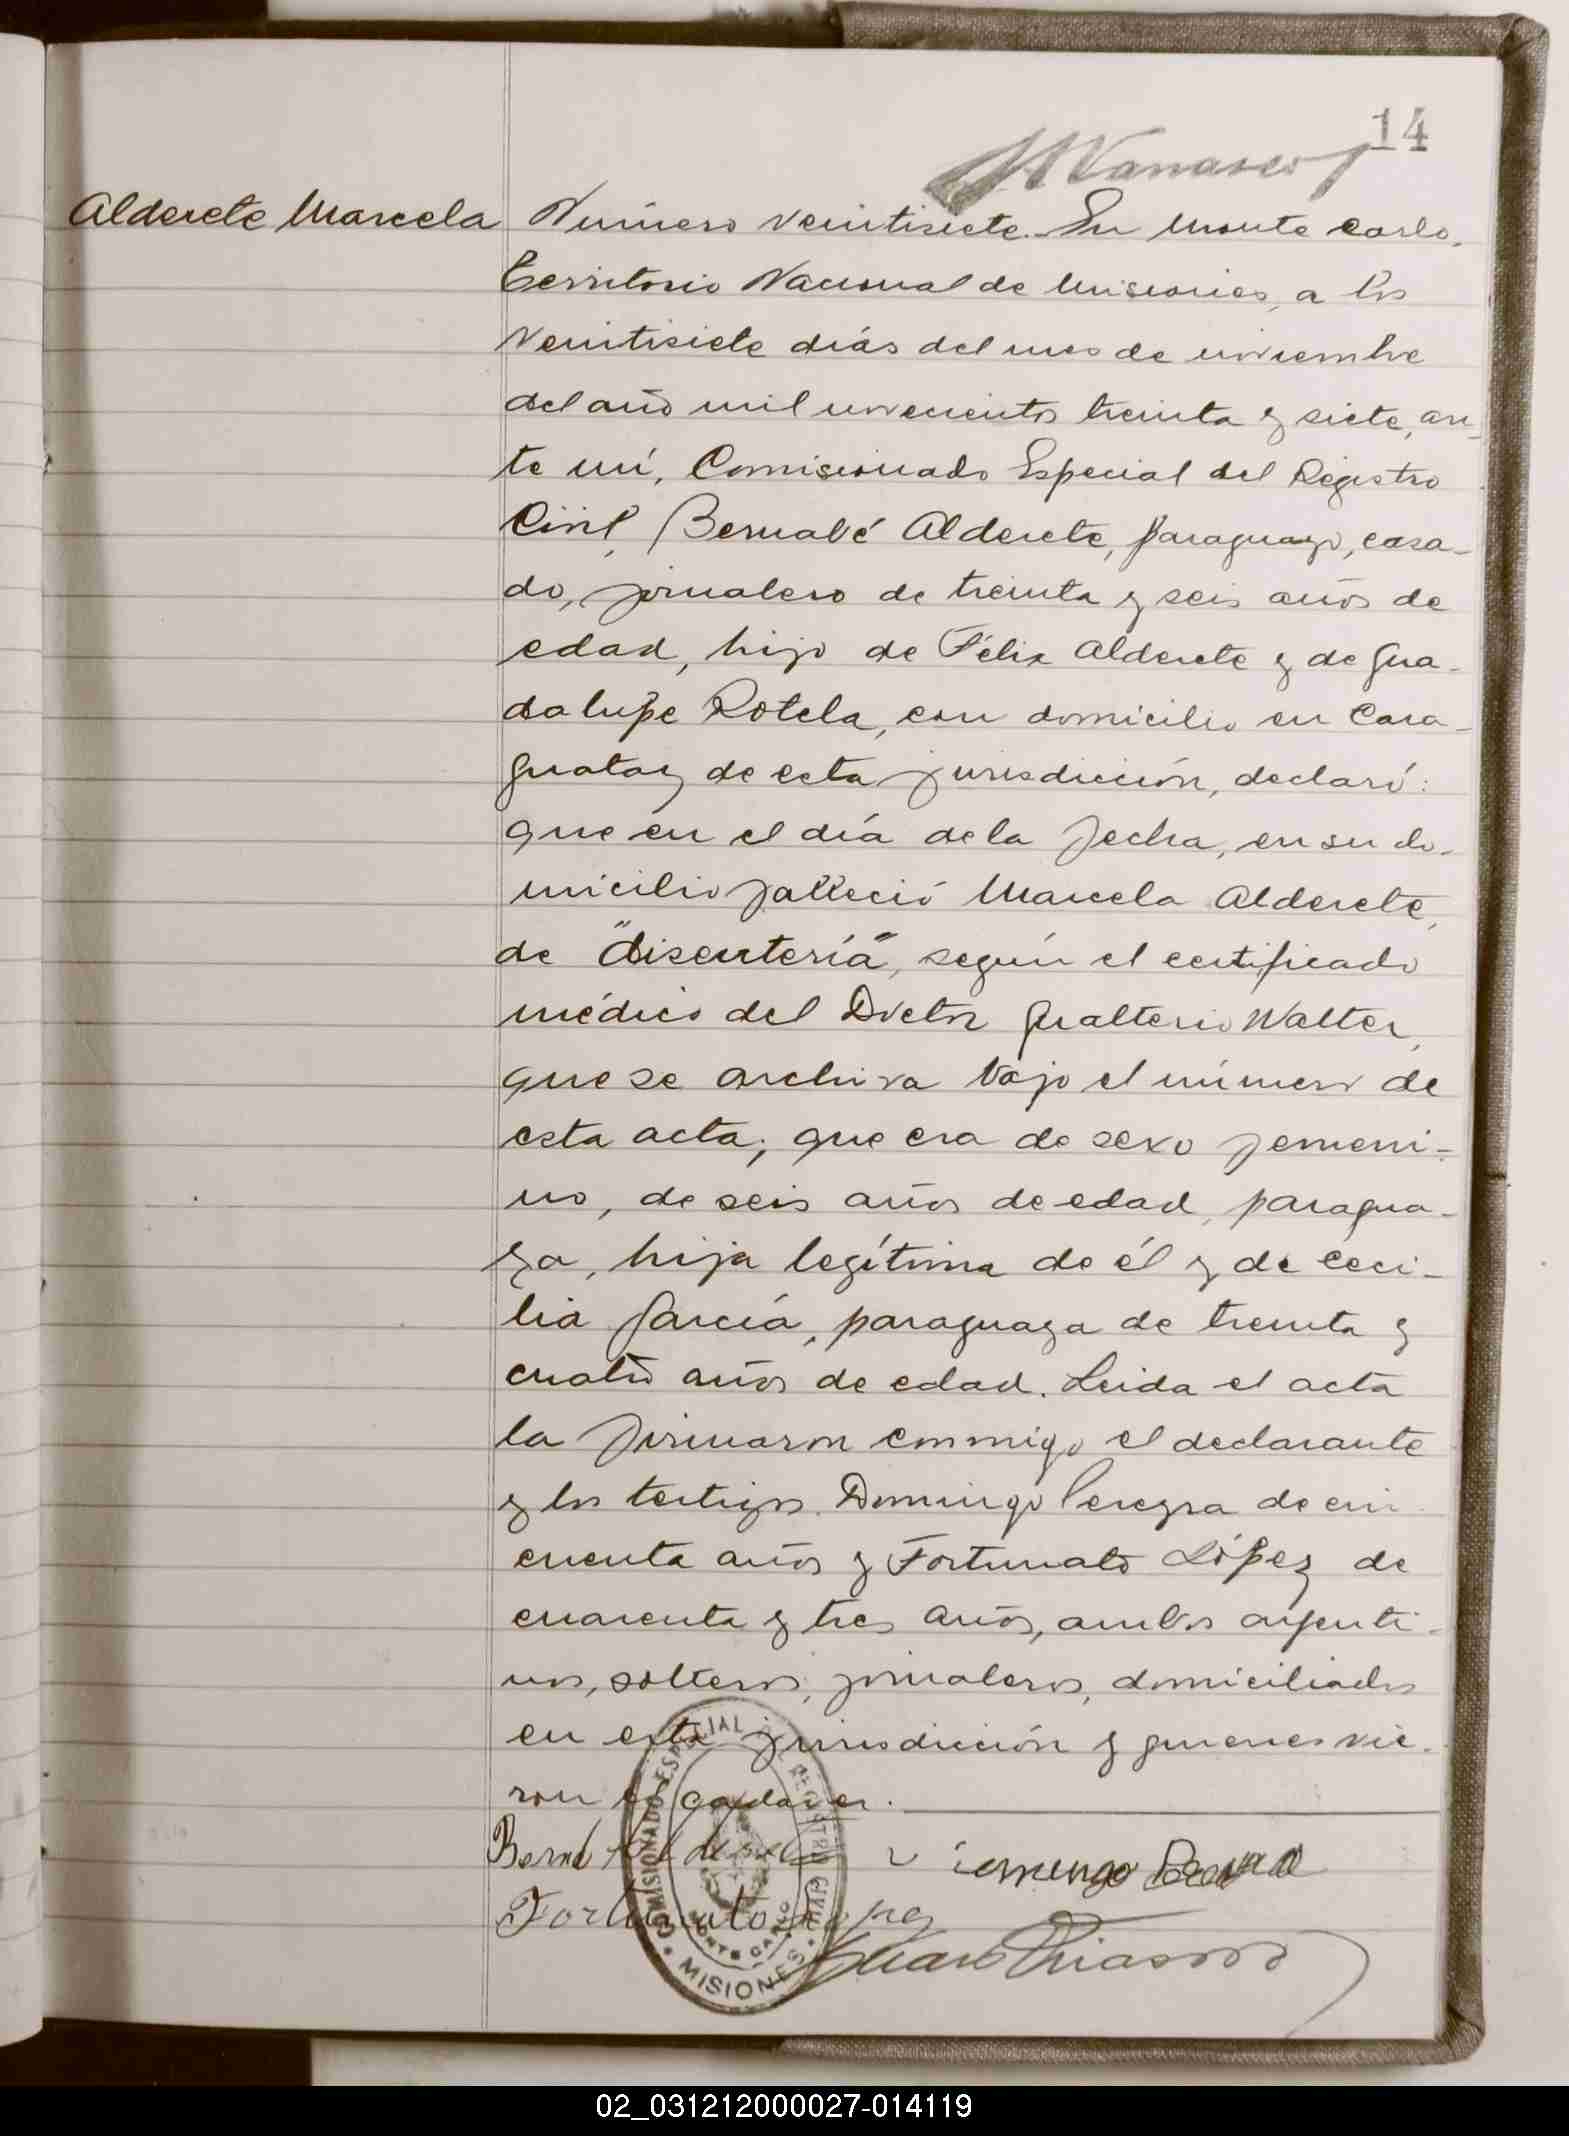 14
Vanasco
Alderete Marcela
Número veintisiete. En Monte Carlo,
Territorio Nacional de Misiones, a los
veintisiete días del mes de noviembre
del año mil novecientos treinta y siete, an-
te mí, Comisionado Especial del Registro
Civil, Bernabé Alderete, paraguayo, casa-
do, jornalero de treinta y seis años de
edad, hijo de Félix Alderete y de Gua-
dalupe Rotela, con domicilio en Cara-
guatay de esta jurisdicción, declaró:
que en el día de la fecha, en su do-
micilio falleció Marcela Alderete,
de "disentería", según el certificado
médico del Doctor Gualterio Walter,
que se archiva bajo el número de
esta acta; que era de sexo femeni-
no, de seis años de edad, paragua-
ya, hija legítima de él y de Ceci-
lia García, paraguaya de treinta y
cuatro años de edad. Leida el acta
la firmaron conmigo el declarante
y los testigos. Domingo Pereyra de cin-
cuenta años y Fortunato López de
cuarenta y tres años, ambos argenti-
nos, solteros, jornaleros, domiciliados
en esta jurisdicción y quienes vie-
ron el cadaver.
Bernabé Alderete
Domingo Pereyra
Fortunato Lopez
Juan
COMISIONADO ESPECIAL DEL REGISTRO CIVIL
MONTE CARLO
MISIONES
02_031212000027-014119